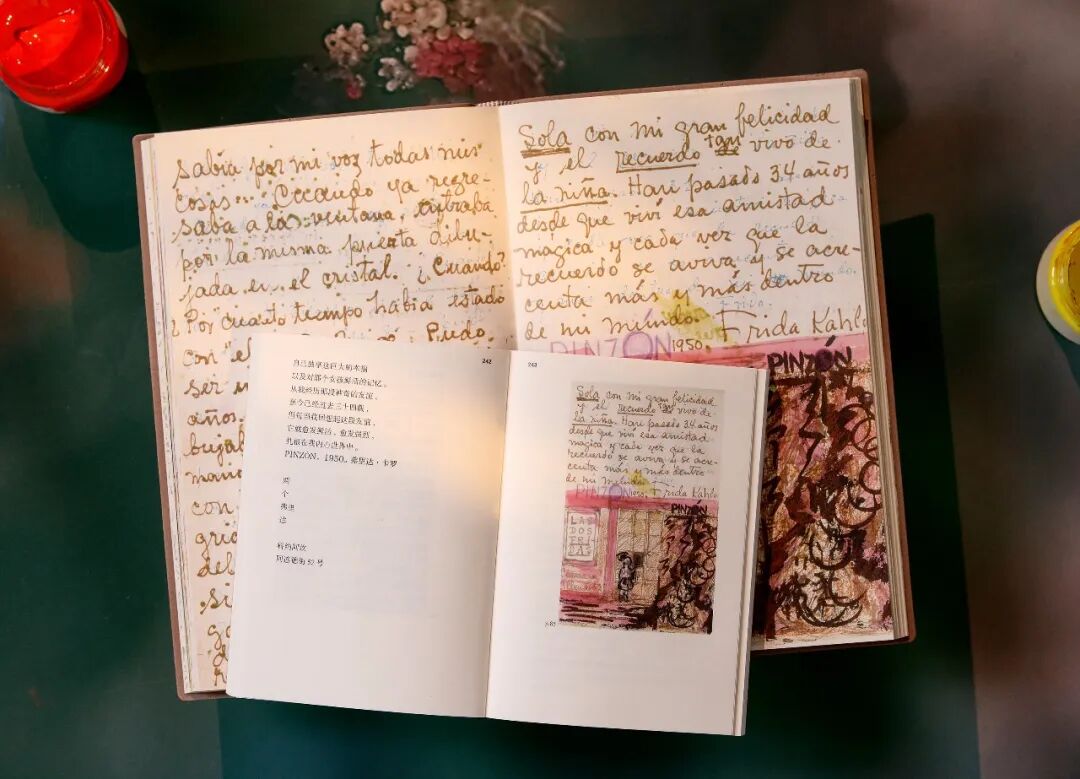 sabia por mi voz todas mis
cosas... Cuando ya regre-
saba a la ventana, entraba
por la misma puerta dibu-
jada en el cristal. ¿Cuando?
¿Por cuanto tiempo habia estado
con "el Pudo
ser
años
bujab
con
del
si
Sola con mi gran felicidad
y el recuerdo tan vivo de
la niña. Han pasado 34 años
desde que viví esa amistad
magica y cada vez que la
recuerdo se aviva y se acre-
centa más y más dentro
de mi mundo. Frida Kahlo
PINZÓN 1950.
PINZÓN
242
以及对那个女孩鲜活的记忆。
从我经历那段神奇的友谊,
至今已经过去三十四载,
但每当我回想起这段友谊,
它就愈发鲜活、愈发强烈,
扎根在我内心世界中。
PINZÓN, 1950。弗里达·卡罗
两
个
弗里
达
科约阿坎
阿连德街 52 号
243
Sola con mi gran felicidad
y el recuerdo tan vivo de
la niña. Han pasado 34 años
desde que viví esa amistad
magica y cada vez que la
recuerdo se aviva y se acre-
centa más y más dentro
de mi mundo. Frida Kahlo
PINZÓN 1950.
PINZÓN
LAS
DOS
FRI
DAS